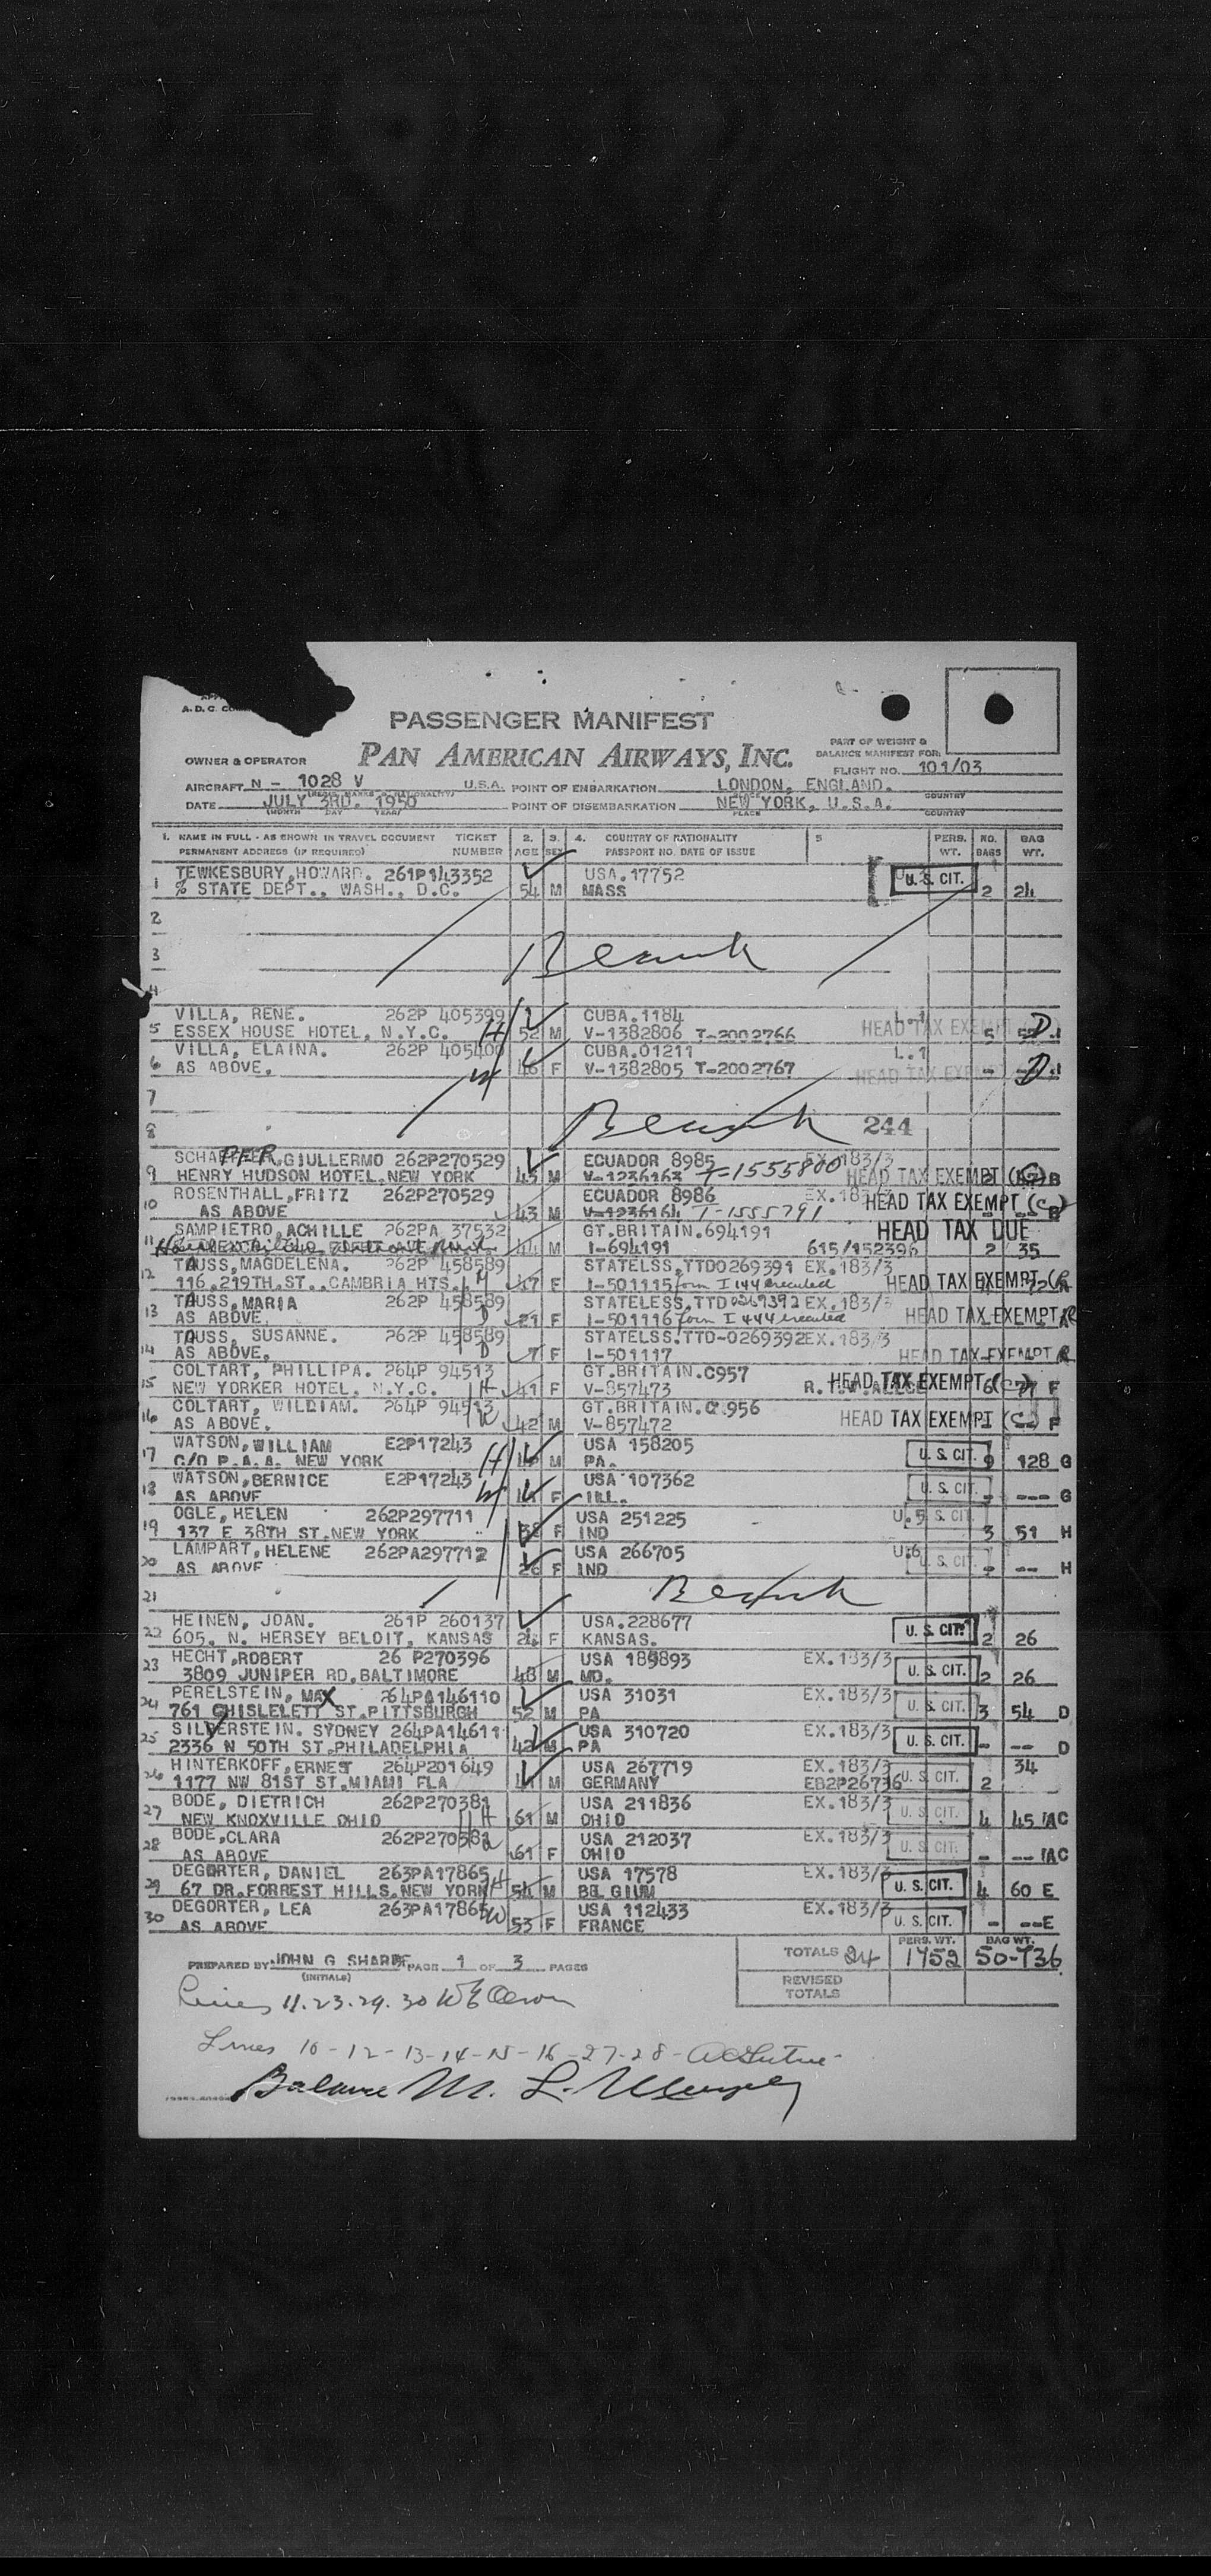 A. D. C.
PASSENGER MANIFEST
PAN AMERICAN AIRWAYS, INC.
PART OF WEIGHT &
BALANCE MANIFEST FOR:
OWNER & OPERATOR
FLIGHT NO. 101/03
AIRCRAFT N - 1028 V U.S.A. POINT OF EMBARKATION LONDON, ENGLAND.
COUNTRY
DATE JULY 3RD. 1950 POINT OF DISEMBARKATION NEW YORK, U.S.A.
(MONTH DAY YEAR) PLACE COUNTRY
1. NAME IN FULL - AS SHOWN IN TRAVEL DOCUMENT TICKET 2. 3. 4. COUNTRY OF NATIONALITY 5 PERS. NO. BAG
PERMANENT ADDRESS (IF REQUIRED) NUMBER AGE SEX PASSPORT NO. DATE OF ISSUE WT. BAGS WT.
TEWKESBURY, HOWARD. 261P143352 USA.17752 U.S. CIT.
1 % STATE DEPT., WASH., D.C. 54 M MASS 2 24
2
3
4
VILLA, RENE. 262P 405399 CUBA.1184 L.1
5 ESSEX HOUSE HOTEL, N.Y.C. H 52 M V-1382806 T-2002766 HEAD TAX EXEMPT 5 D.
VILLA, ELAINA. 262P 405400 CUBA.01211 L.1
6 AS ABOVE. W 46 F V-1382805 T-2002767 HEAD TAX EXEMPT - D.
7
8 244
SCHAEFFER, GIULLERMO 262P270529 ECUADOR 8985 EX.183/3
9 HENRY HUDSON HOTEL, NEW YORK 45 M V-1236163 T-1555800 HEAD TAX EXEMPT (C) B
ROSENTHALL, FRITZ 262P270529 ECUADOR 8986 EX.183/3
10 AS ABOVE 43 M V-1236164 T-1555791 HEAD TAX EXEMPT (C) B
SAMPIETRO, ACHILLE 262PA 37532 GT.BRITAIN.694191 HEAD TAX DUE
11 44 M I-694191 615/152396 2 35
TAUSS, MAGDELENA. 262P 458589 STATELSS.TTD0269391 EX.183/3
12 116.219TH.ST., CAMBRIA HTS. M 47 F I-501115 form I 444 executed HEAD TAX EXEMPT R
TAUSS, MARIA 262P 458589 STATELESS.TTD 0269392 EX.183/3
13 AS ABOVE. D 21 F I-501116 form I 444 executed HEAD TAX EXEMPT R
TAUSS, SUSANNE. 262P 458589 STATELSS.TTD-0269392 EX.183/3
14 AS ABOVE. D 7 F I-501117 HEAD TAX EXEMPT R
COLTART, PHILLIPA. 264P 94513 GT.BRITAIN.C957
15 NEW YORKER HOTEL, N.Y.C. H 41 F V-857473 HEAD TAX EXEMPT (C) 6 77 F
COLTART, WILLIAM. 264P 94513 GT.BRITAIN.C 956
16 AS ABOVE. W 42 M V-857472 HEAD TAX EXEMPT (C) F
WATSON, WILLIAM E2P17243 USA 158205 U.S. CIT.
17 C/O P.A.A. NEW YORK H M PA. 9 128 G
WATSON, BERNICE E2P17243 USA 107362 U.S. CIT.
18 AS ABOVE W F ILL. - --- G
OGLE, HELEN 262P297711 USA 251225 U.5 U.S. CIT.
19 137 E 38TH ST. NEW YORK F IND 3 51 H
LAMPART, HELENE 262PA297712 USA 266705 U.6 U.S. CIT.
20 AS ABOVE 26 F IND - -- H
21
HEINEN, JOAN. 261P 260137 USA.228677 U.S. CIT.
22 605. N. HERSEY BELOIT, KANSAS F KANSAS. 2 26
HECHT, ROBERT 26 P270396 USA 189893 EX.183/3 U.S. CIT.
23 3809 JUNIPER RD, BALTIMORE 48 M MD. 2 26
PERELSTEIN, MAX 264PA146110 USA 31031 EX.183/3 U.S. CIT.
24 761 CHISLELETT ST. PITTSBURGH 52 M PA 3 54 D
SILVERSTEIN. SYDNEY 264PA14611 USA 310720 EX.183/3 U.S. CIT.
25 2336 N 50TH ST. PHILADELPHIA 42 M PA - -- D
HINTERKOFF, ERNEST 264P201649 USA 267719 EX.183/3 34
26 1177 NW 81ST ST. MIAMI FLA M GERMANY EB2P26736 U.S. CIT. 2
BODE, DIETRICH 262P270381 USA 211836 EX.183/3 U.S. CIT.
27 NEW KNOXVILLE OHIO H 61 M OHIO 4 45 AC
BODE, CLARA 262P270381 USA 212037 EX.183/3 U.S. CIT.
28 AS ABOVE W 61 F OHIO - -- AC
DEGORTER, DANIEL 263PA17865 USA 17578 EX.183/3 U.S. CIT.
29 67 DR. FORREST HILLS. NEW YORK H 54 M BELGIUM 4 60 E
DEGORTER, LEA 263PA17865 USA 112433 EX.183/3 U.S. CIT.
30 AS ABOVE W 53 F FRANCE - -- E
PERS. WT. BAG WT.
PREPARED BY JOHN G SHARPE PAGE 1 OF 3 PAGES TOTALS 24 1752 50-736
(INITIALS) REVISED TOTALS
Lines 11.23.29.30
Lines 10-12-13-14-15-16-27-28-
Balance M. L.